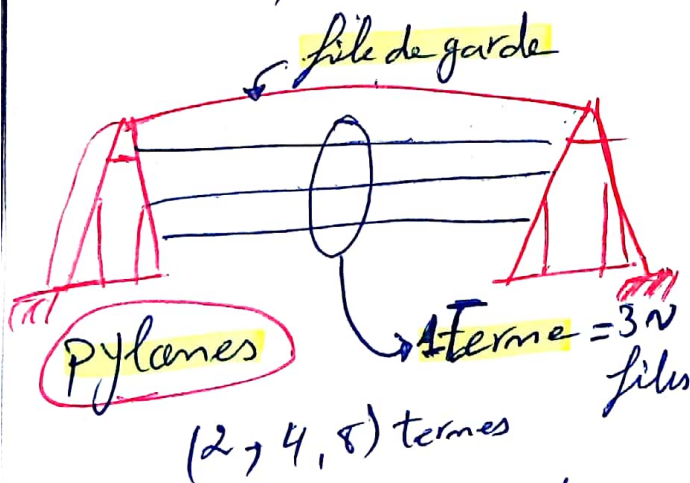 file de garde
pylones
1 Terne = 3~
files
(2, 4, 8) ternes